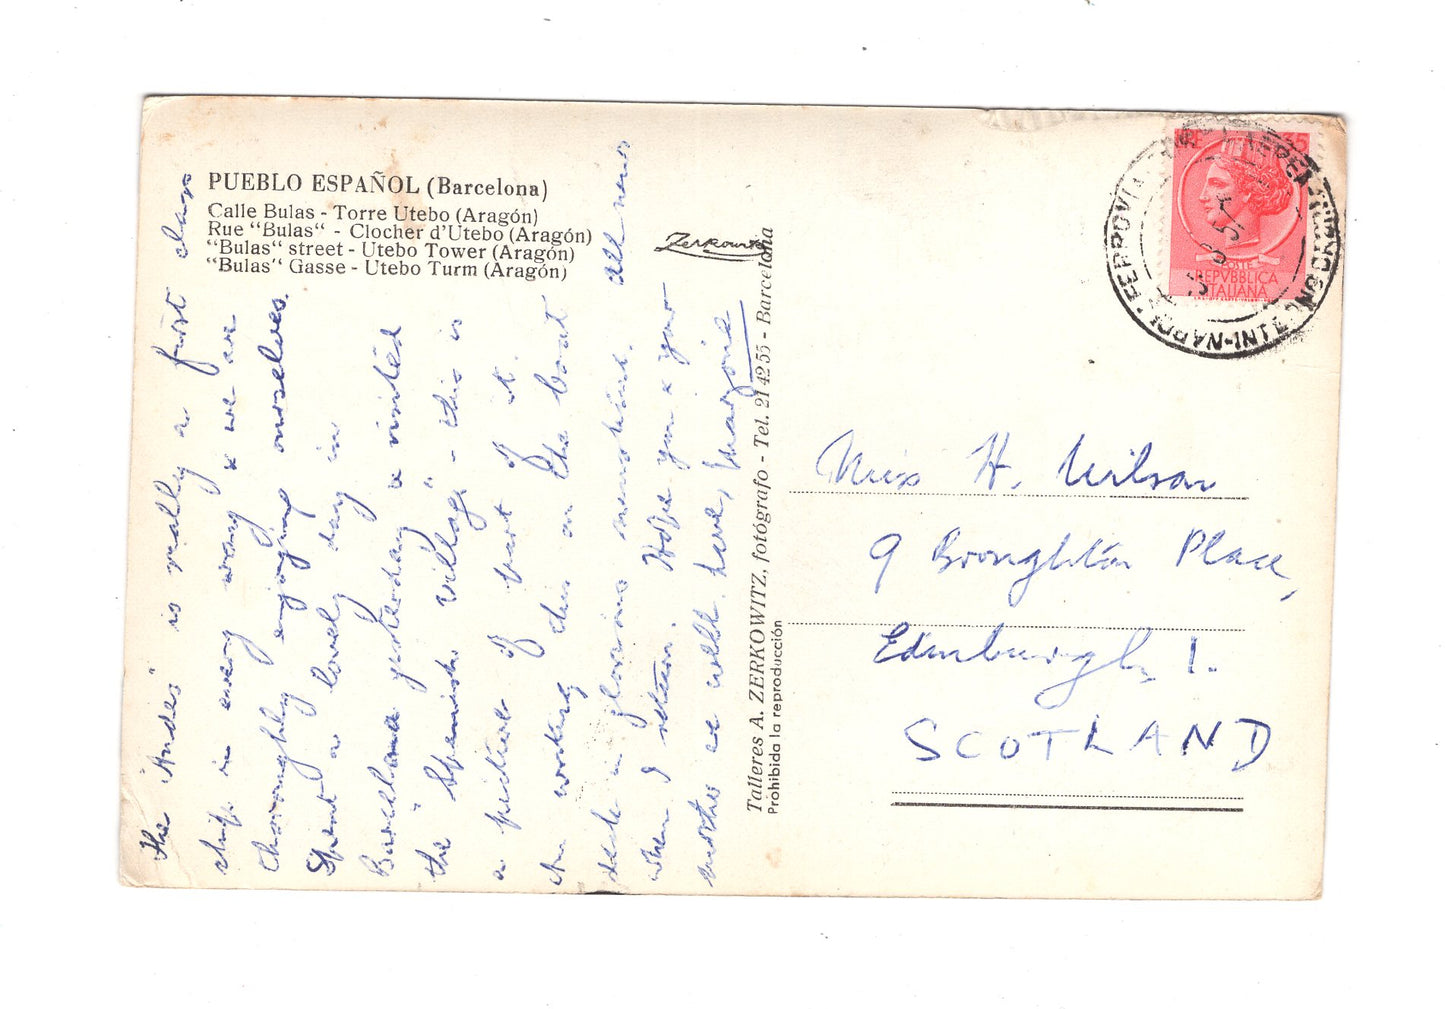 PUEBLO ESPAÑOL (Barcelona)
Calle Bulas - Torre Utebo (Aragón)
Rue "Bulas" - Clocher d'Utebo (Aragón)
"Bulas" street - Utebo Tower (Aragón)
"Bulas" Gasse - Utebo Turm (Aragón)
Zerkowitz
The "Andes" is really a first class
ship in every way & we are
thoroughly enjoying ourselves.
Spent a lovely day in
Barcelona yesterday & visited
the "Spanish village" - this is
a picture of part of it.
Am writing this on the boat
deck in glorious sunshine. All news
when I return. Hope you & your
mother are well. Love, Marjorie
Talleres A. ZERKOWITZ, fotógrafo - Tel. 21 42 55 - Barcelona
Prohibida la reproducción
35
POSTE
REPVBBLICA
ITALIANA
Miss H. Wilson
9 Broughton Place,
Edinburgh, 1.
SCOTLAND